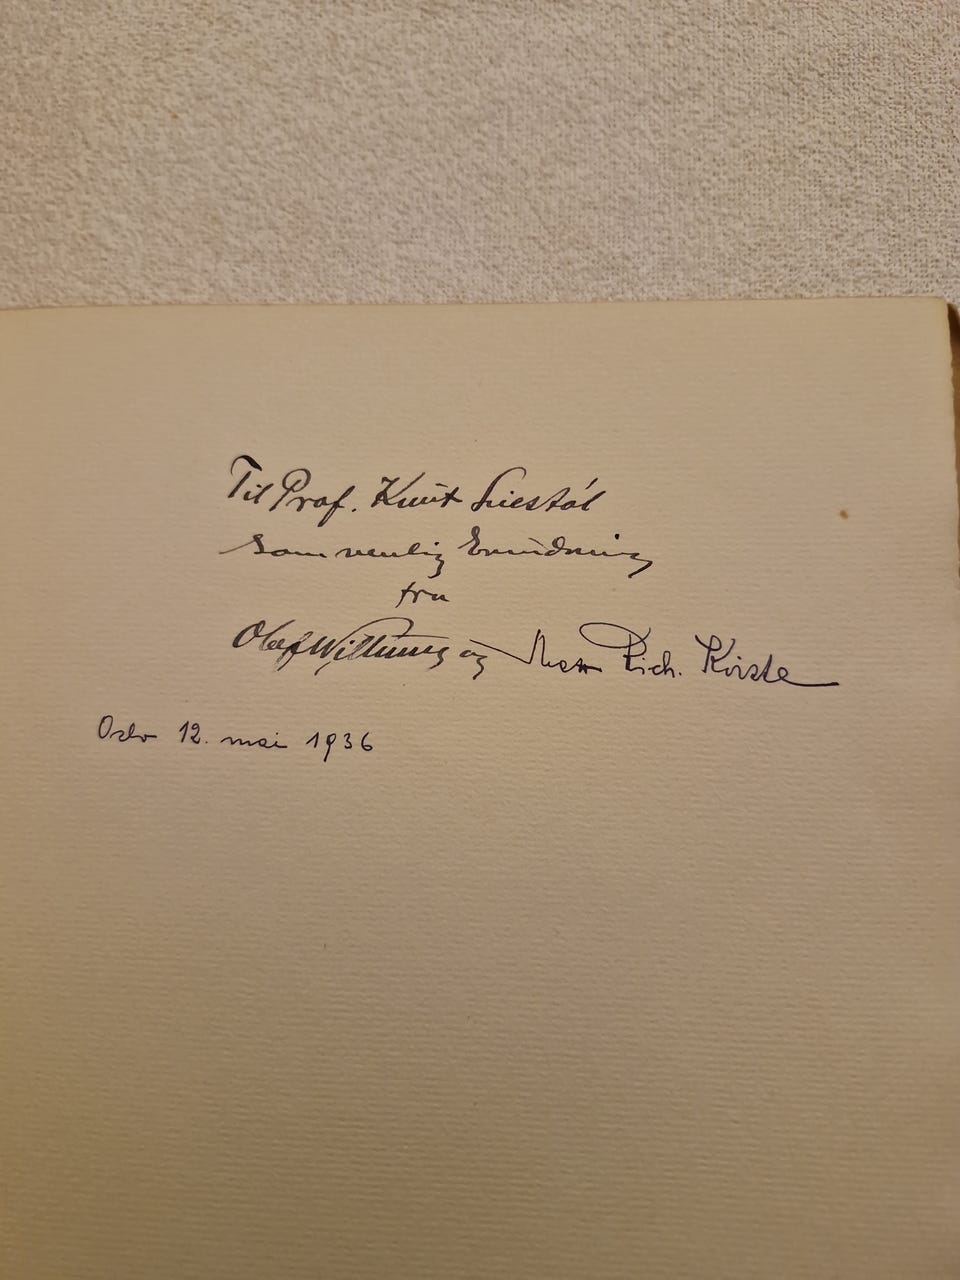 Til Prof. Knut Liestöl
som venlig Erindring
fra
Olaf Willums og Max Rich. Kirste
Oslo 12. mai 1936